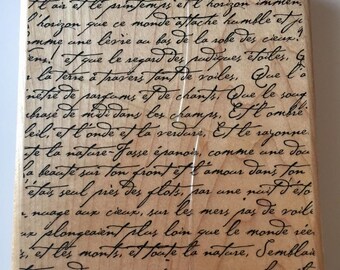 t l'air et le printemps et l'horizon immen
l'horizon que ce monde attache humble et jo
omme une lèvre au bas de la robe des cieux!
et que le regard des pudiques étoiles,
la terre à travers tant de voiles, Que l'o
être de parfums et de chants, Que le souf
brase de midi dans les champs, Et l'ombre
leil et l'onde et la verdure, Et le rayonne
te la nature Fasse épanouir, comme une dou
la beauté sur ton front et l'amour dans ton
étais seul près des flots, par une nuit d'ét
nuage aux cieux, sur les mers pas de voil
ux plongeaient plus loin que le monde rée
s, et les monts, et toute la nature, Semblai